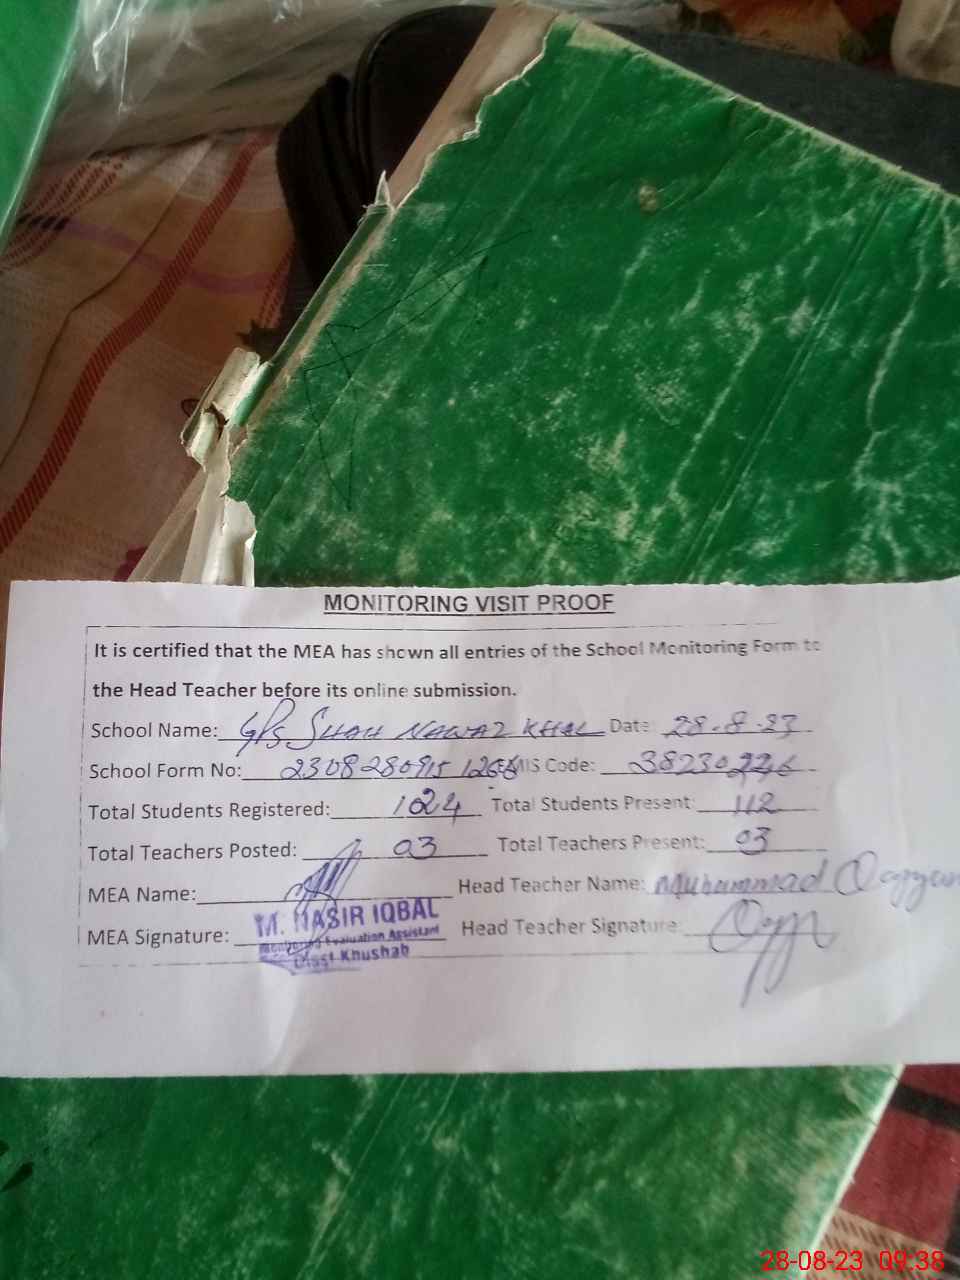 MONITORING VISIT PROOF
It is certified that the MEA has shown all entries of the School Monitoring Form to
the Head Teacher before its online submission.
School Name: GPS SHAH NAWAZ KHAL Date: 28-8-23
School Form No: MIS Code:
Total Students Registered: 124 Total Students Present: 112
Total Teachers Posted: 03 Total Teachers Present: 03
MEA Name: Head Teacher Name: Muhammad Qayyum
MEA Signature: Head Teacher Signature:
M. NASIR IQBAL
Monitoring Evaluation Assistant
Distt Khushab
28-08-23 09:38